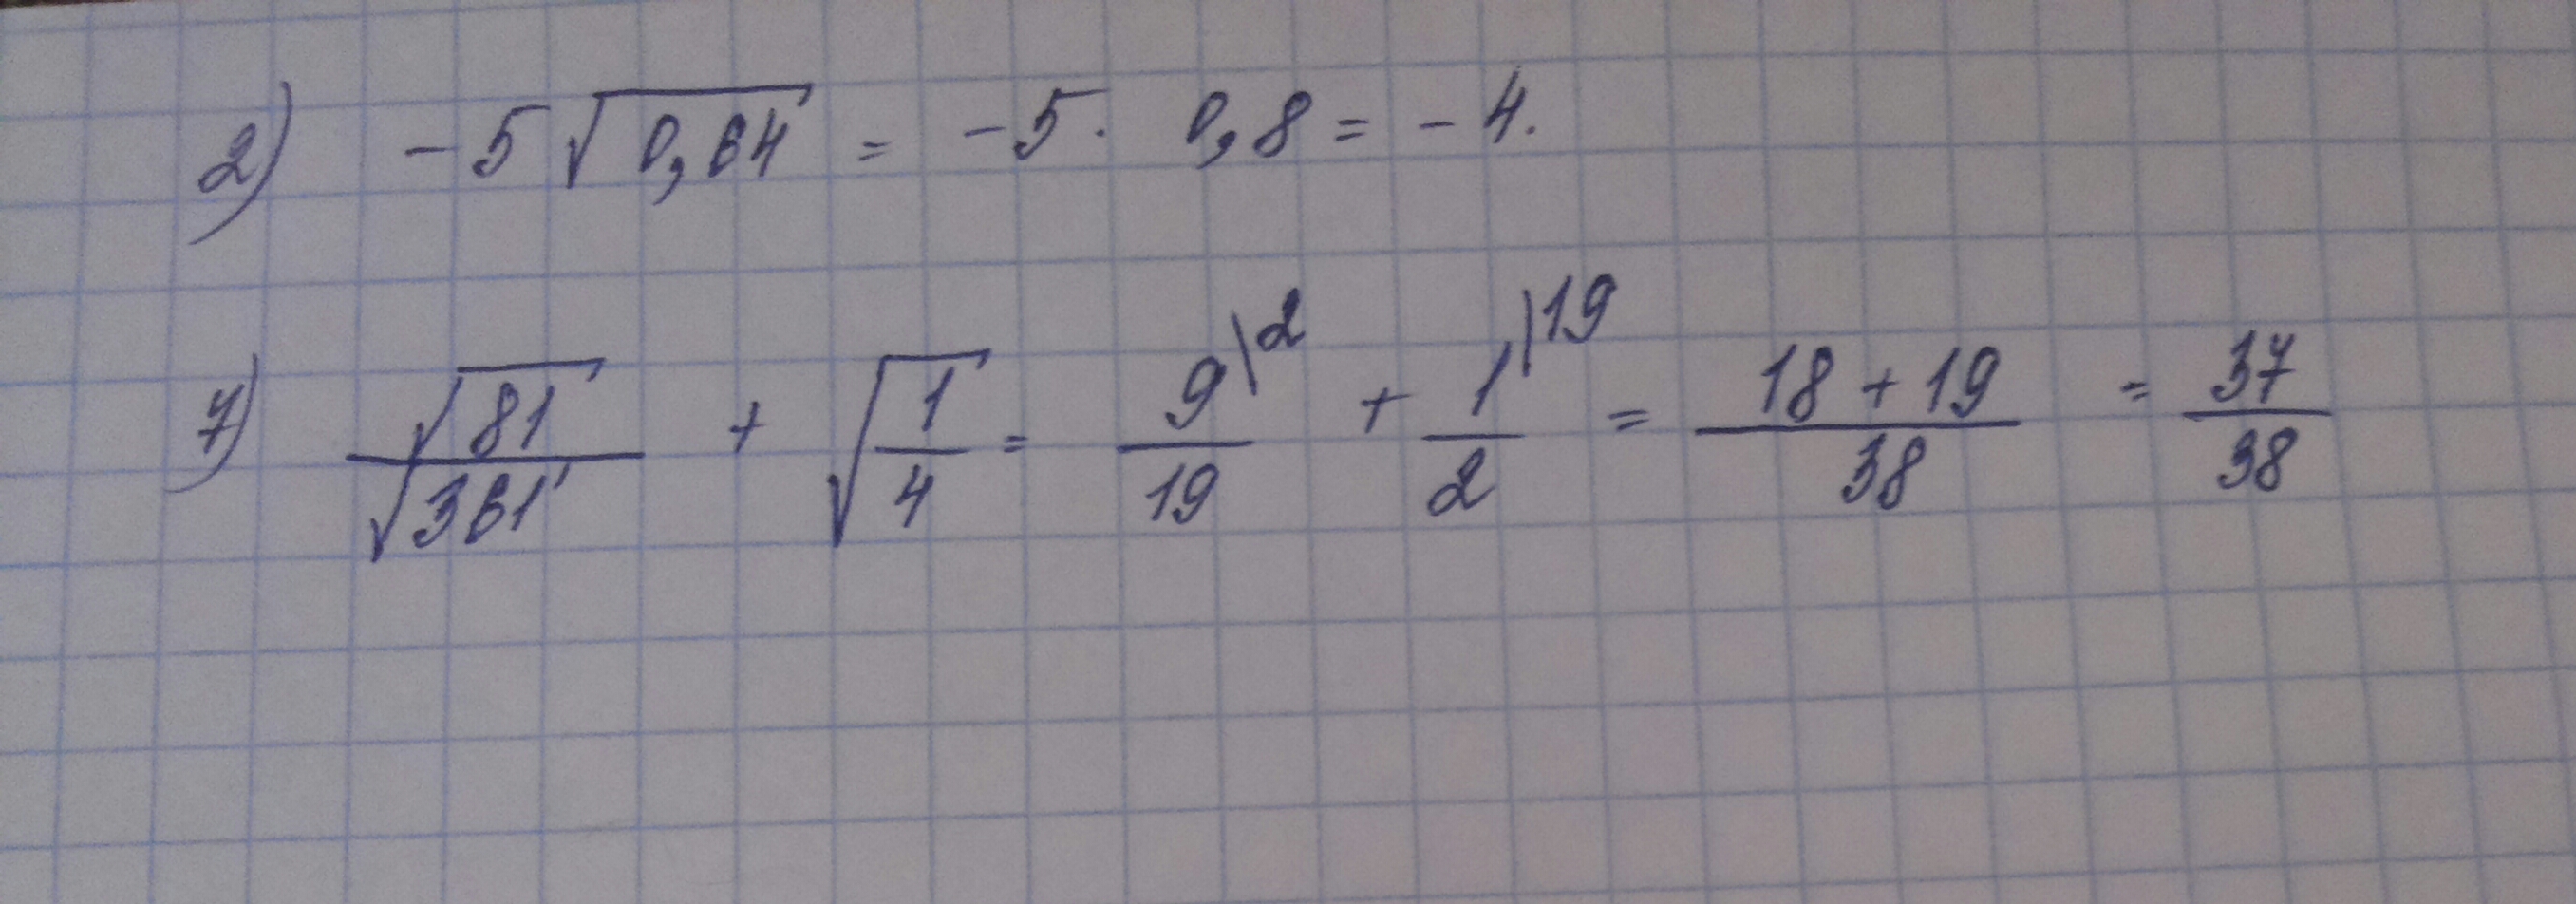 2) -5√0,64 = -5· 0,8 = -4.
7) √81/√361 + √(1/4) = 9\2/19 + 1\19/2 = (18 + 19)/38 = 37/38